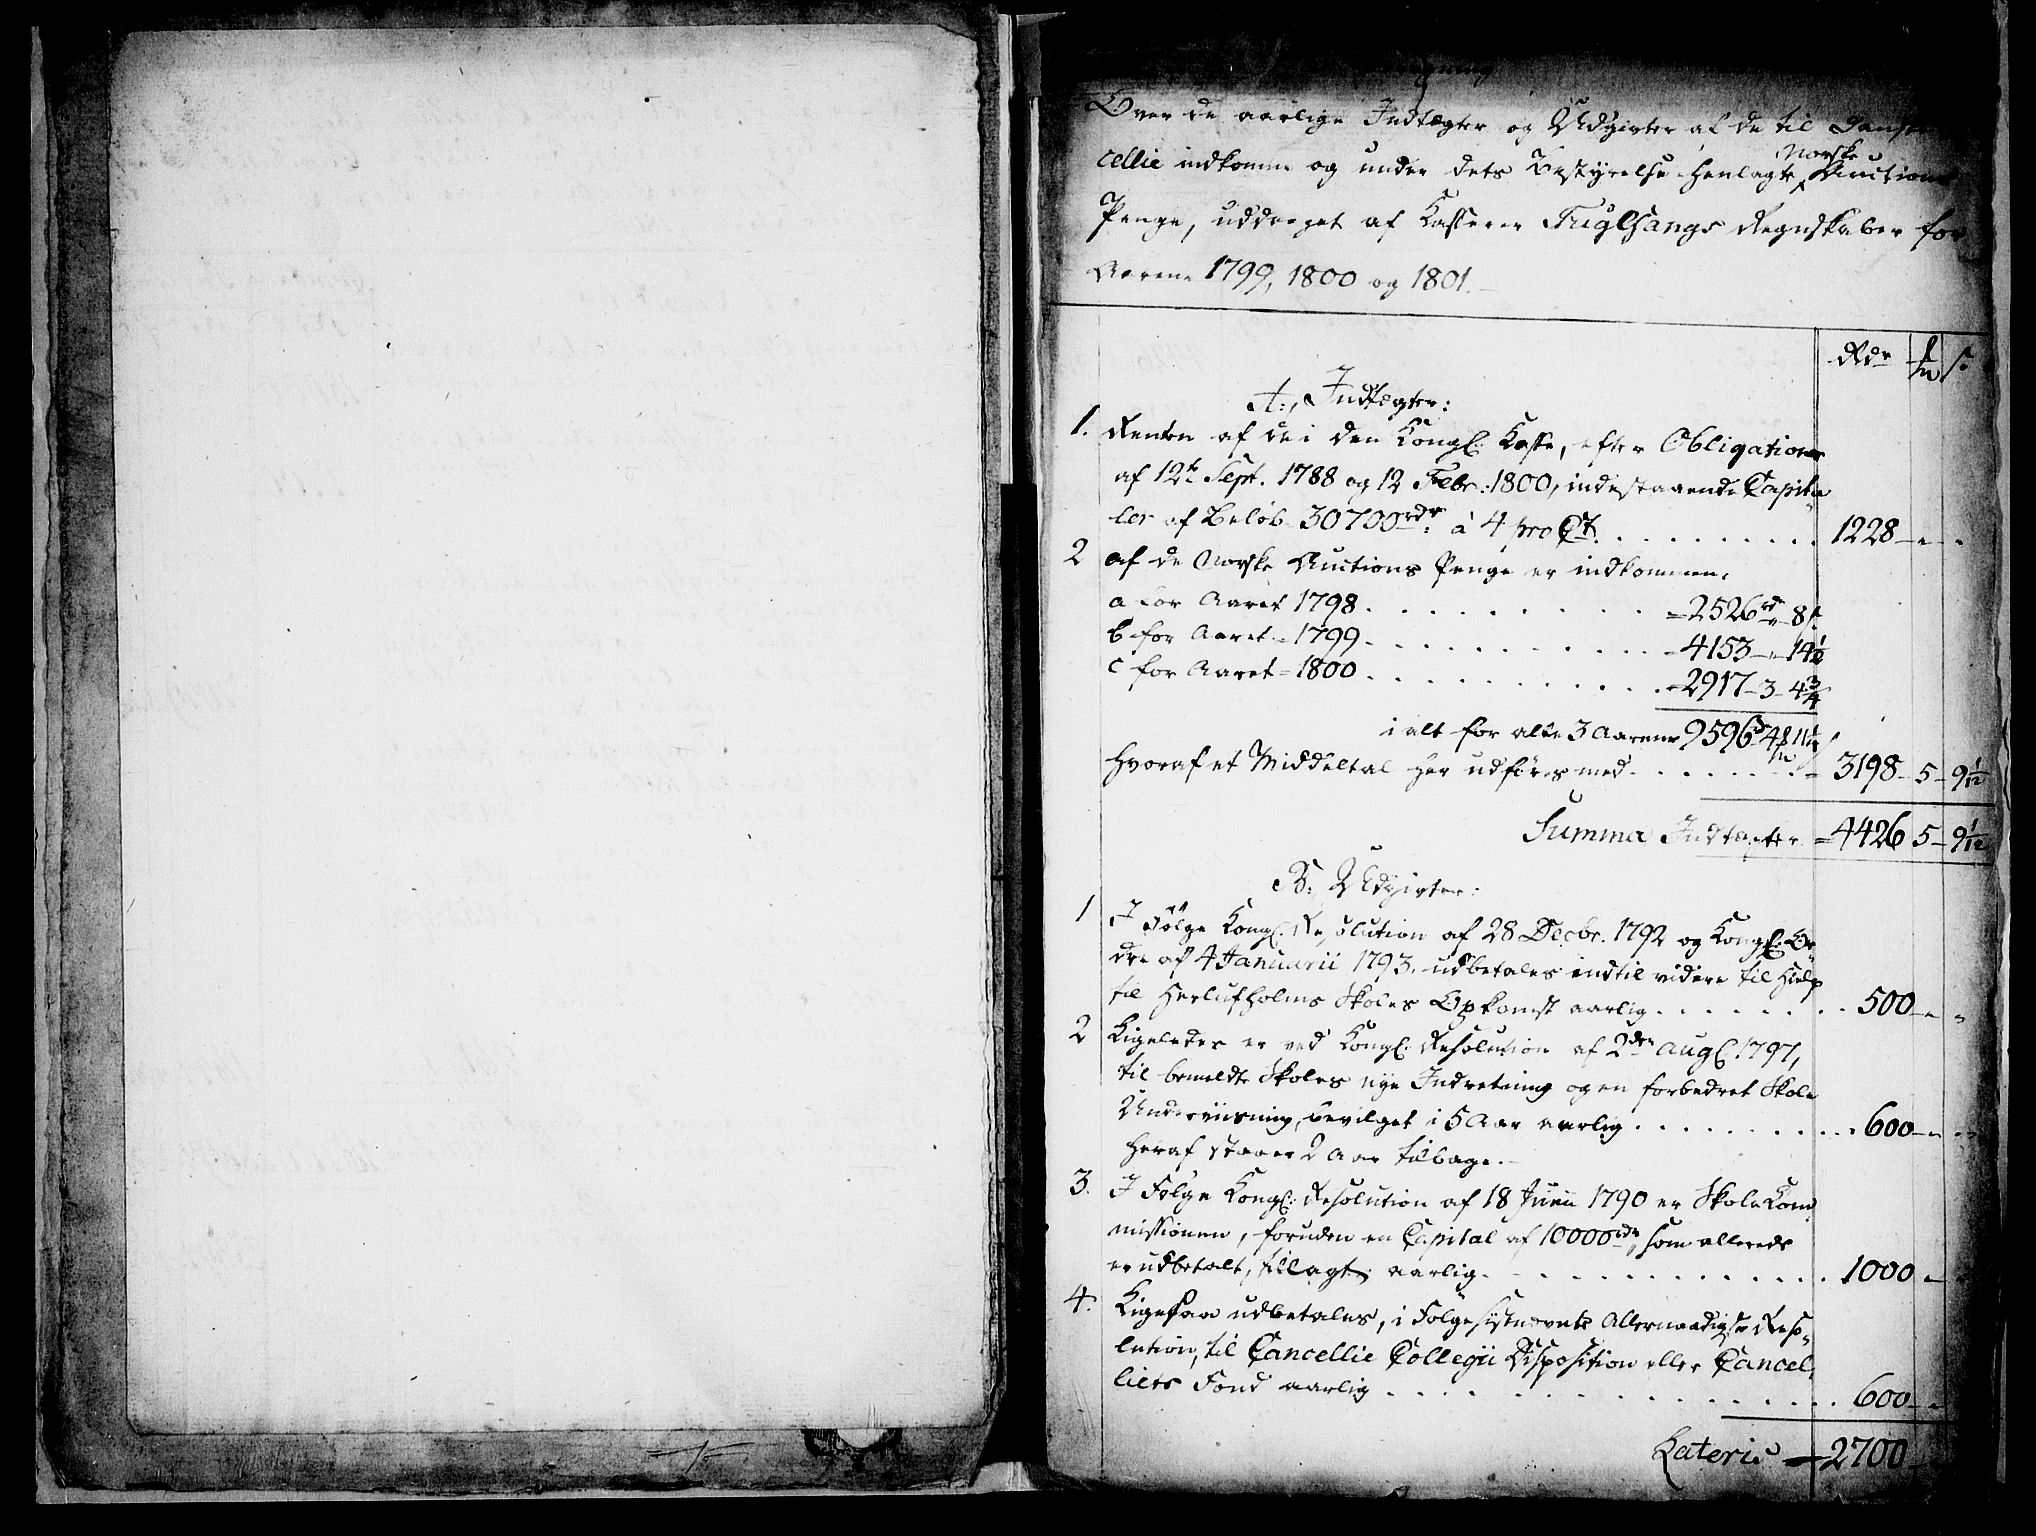 Over de aarlige Indtægter og Udgivter af de til Danske
cellie indkomne og under dets Bestyrelse henlagte Norske Auctions
Penge, uddraget af Kasserer Fuglsangs Regnskaber for
Aarene 1799, 1800 og 1801.
Rdr ℔ s.
A:, Indtægter:
1. Renten af de i den Kongl: Kasse, efter Obligationer
af 12te Sept. 1788 og 12 Febr: 1800, indestaaende Capita„
ler af Beløb 30700 rdr: à 4 pro Ct. . . . . . . . . . 1228 – „ – „
2 af de Norske Auctions Penge er indkommen:
a for Aaret 1798 . . . . . . . . = 2526 rd „ 8 s.
b for Aaret = 1799 . . . . . . . . - 4153 – „ – 14½
c for Aaret = 1800 . . . . . . . . - 2917 – 3 – 4¾
i alt for alle 3 Aarene 9596 4 11¼
Hvoraf et Middeltal her udføres med . . . . . . . = 3198 – 5 – 9 1/12
Summa Indtægter = 4426 5 – 9 1/12
B: Udgivter:
1 I Følge Kongl: Resolution af 28 Decbr. 1792 og Kongl: Or„
dre af 4 Januarii 1793. udbetales indtil videre til Hielp
til Herlufholms Skoles Opkomst aarlig . . . . . . . . 500 – „ „
2 Ligeledes er ved Kongl: Resolution af 2den Augl. 1797,
til bemeldte Skoles nye Indretning og en forbedret Skole
Underviisning, bevilget i 5 Aar aarlig . . . . . . . . . . 600 – „ „
heraf staaer 2 Aar tilbage. –
3. I Følge Kongl: Resolution af 18 Junii 1790 er Skole Kom„
missionen, foruden en Capital af 10000 rdr, som allerede
er udbetalt, tillagt aarlig . . . . . . . . . . . 1000 „
4. Ligesaa udbetales, i Følge sidstnævnte Allernaadigste Reso„
lution, til Cancellie Collegii Disposition eller Cancel„
liets Fond aarlig . . . . . . . . . . . . . . 600 – „
Lateris – 2700